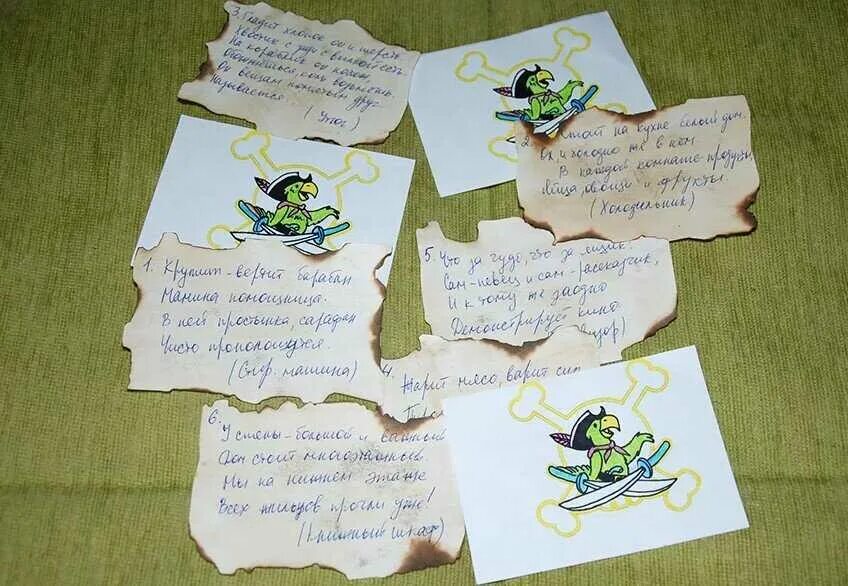 3. Гладит хлопок он и шерсть,
Хвостик с
На кораблик он похож,
Называется...
(Утюг)
2. Стоит на кухне белый дом.
Ох, и холодно же в нем
В каждой комнате продукты
Яйца, овощи и фрукты
(Холодильник)
1. Крутит-вертит барабан
Мамина помощница.
В ней простынка, сарафан
Чисто прополощутся.
(Стир. машина)
5. Что за чудо, что за ящик:
Сам-певец и сам-рассказчик,
И к тому же заодно
Демонстрирует кино
4. Жарит мясо, варит суп
6. У стены-большой и важный
Дом стоит многоэтажный
Мы на нижнем этаже
Всех жильцов прочли уже!
(Книжный шкаф)